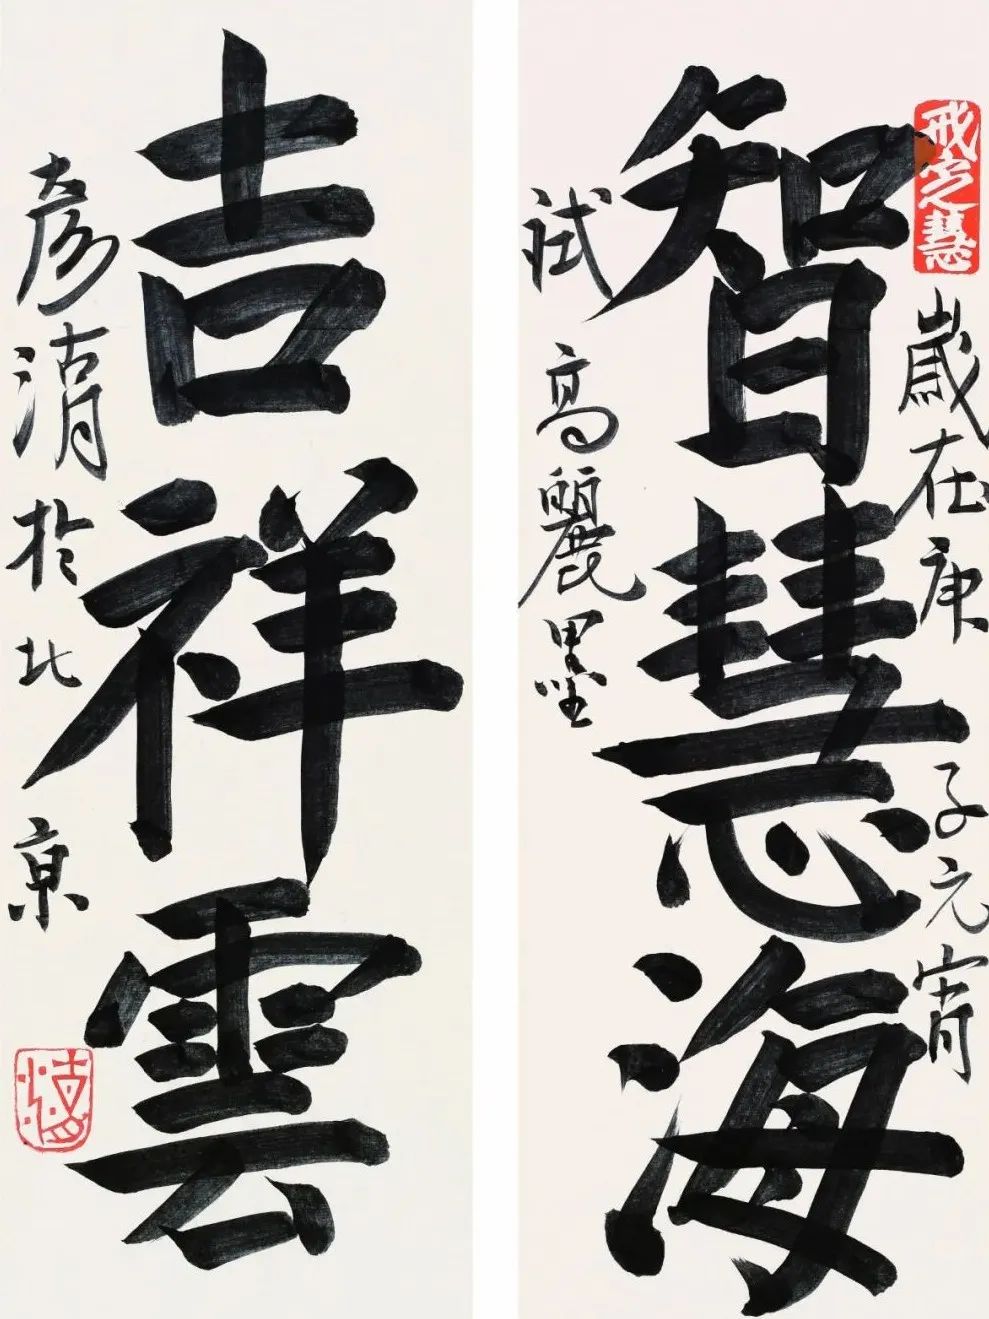 戒定慧
歲在庚子元宵
智慧海
試高麗墨
吉祥雲
彥湖於北京